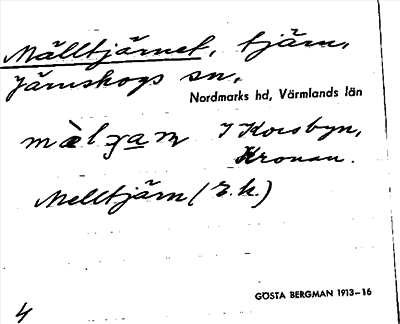 Mälltjärnet, tjärn,
Järnskogs sn,
Nordmarks hd, Värmlands län
I Korsbyn,
Kronan.
Melltjärn (r.k.)
GÖSTA BERGMAN 1913–16
4